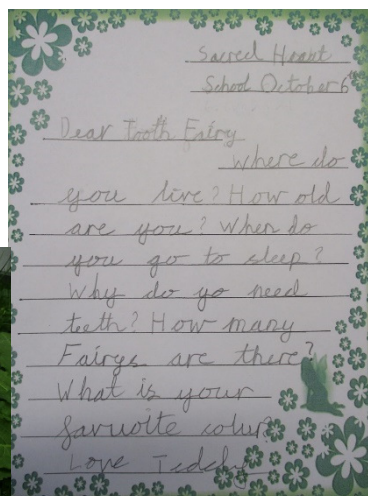 Sacred Hraat
School October 6th
Dear Tooth Fairy
Where do
you live? How old
are you? When do
you go to sleep?
Why do yo need
teeth? How many
Fairys are there?
What is your
favuoite colur?
Love Teddy